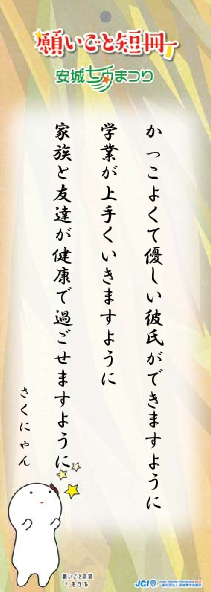 願いごと短冊
安城七夕まつり
かっこよくて優しい彼氏ができますように
学業が上手くいきますように
家族と友達が健康で過ごせますように
さくにゃん
願いごと短冊
JCI